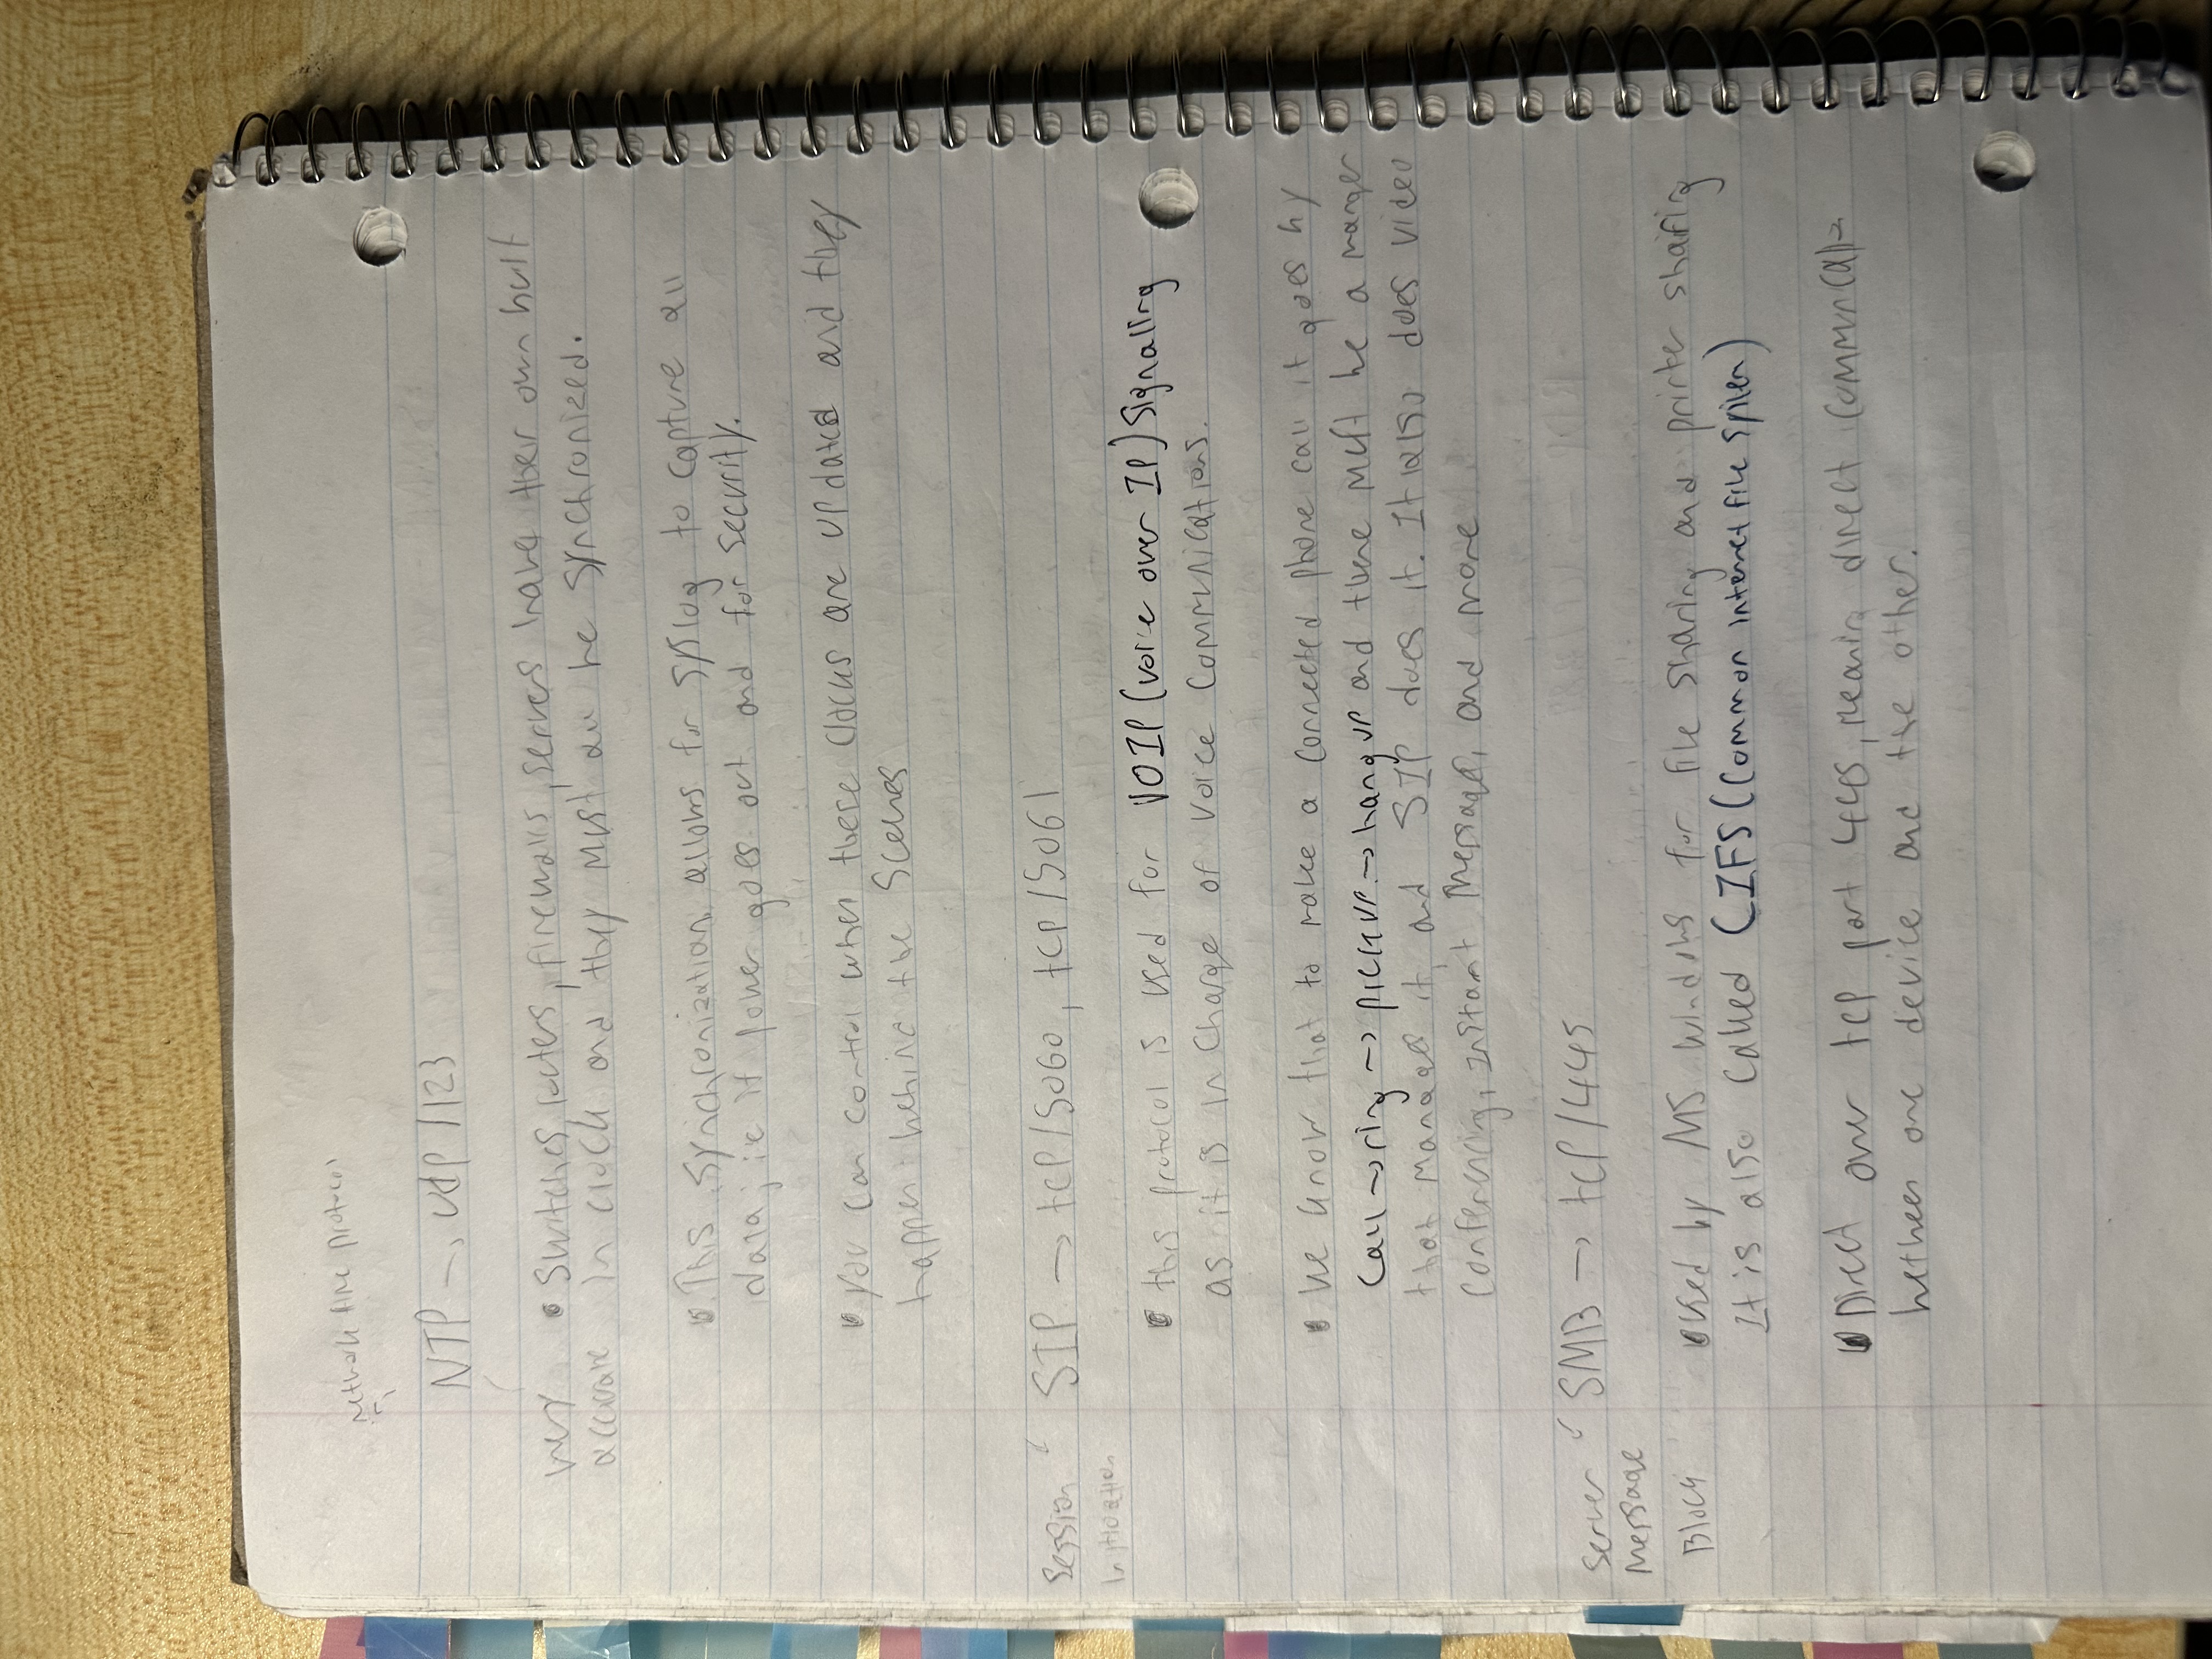 network time protocol
NTP → udp/123
very accurate
• Switches, routers, firewalls, servers have their own built
in clock and they must all be synchronized.
• This synchronization allows for syslog to capture all
data; ie if power goes out and for security.
• you can control when these clocks are updated and they
happen behind the scenes
Session Initiation
SIP → tcp/5060, tcp/5061
• this protocol is used for VOIP (voice over IP) Signaling
as it is in charge of voice communications.
• We know that to make a connected phone call it goes by
call → ring → pick up → hang up and there must be a manger
that manages it, and SIP does it. It also does video
conferencing, instant messages, and more
Server Message Block
SMB → tcp/445
• Used by MS Windows for file sharing and printer sharing
It is also called CIFS (Common Internet File System)
• Direct over tcp port 445, meaning direct communication
between one device and the other.